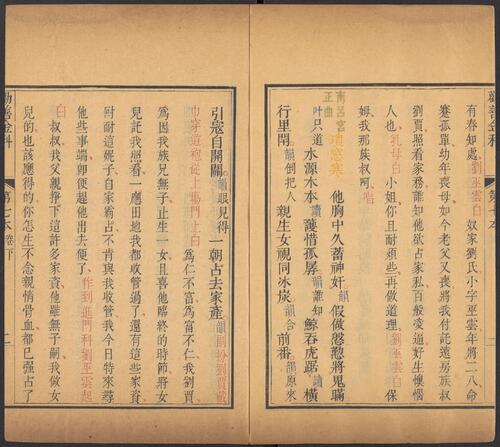 勸善金科 第七本卷下
有春知處 劉巫雲白 奴家劉氏小字巫雲年將二八命
蹇孤單幼年喪母如今老父又喪將我付託遠房族叔
劉賈照看家務誰知他欲占家私百般凌逼好生懊惱
人也 乳母白 小姐你且耐煩些再做道理 劉巫雲白 保
姆我那族叔呵 唱
南呂宮正曲 他胸中久蓄神奸 韻 假做慇懃將鬼瞞
叶 只道 水源木本 讀 護惜孤孱 韻 誰知 鯨吞虎踞 讀 橫
行里閈 韻 倒把人 親生女視同冰炭 韻 合 前番 原來
引寇自開關 韻 眼見得 一朝占去家產 韻
巾穿道袍從上場門上白 為仁不富為富不仁我劉賈
為因我族兄無子止生一女且喜他臨終的時節將女
兒託我照看一應田地我都收管過了還有這些家資
財耐這妮子自家霸占不肯與我收管我今日特來尋
他些事端即便趕他出去便了 作到進門科劉巫雲起
白 叔叔我父親掙下這許多家資他雖無子嗣我做女
兒的也該應得的你怎生不念親情骨血都已强占了
勸善金科 第七本卷下 二